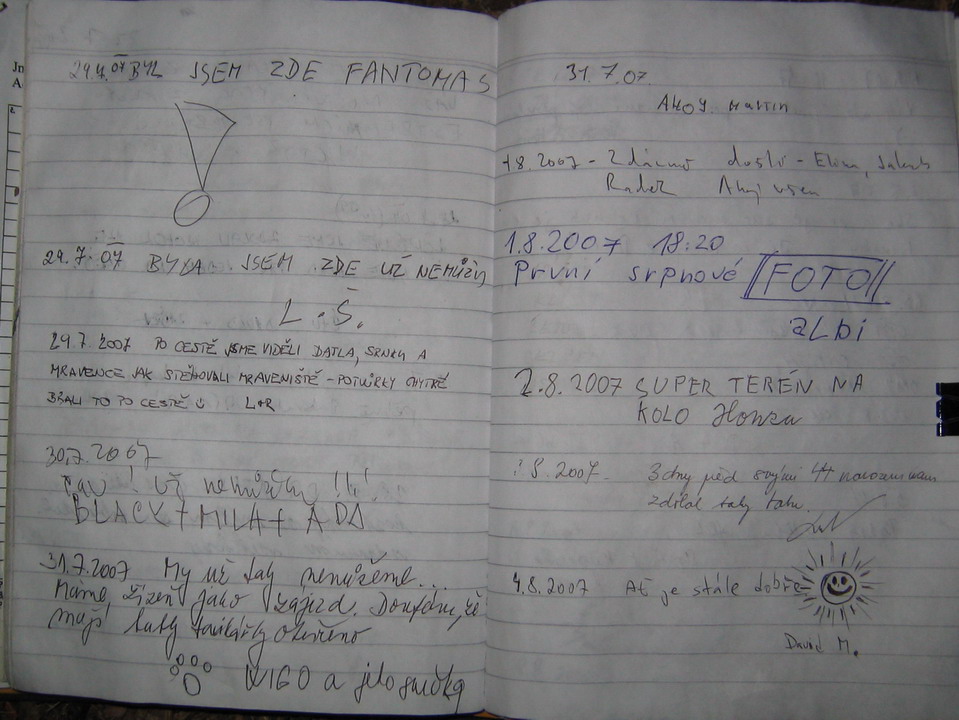 29.7.07 BYL JSEM ZDE FANTOMAS
29.7.07 BYLA JSEM ZDE UŽ NEMŮŽU
L. Š.
29.7.2007 PO CESTĚ JSME VIDĚLI DATLA, SRNKY A
MRAVENCE JAK STĚHOVALI MRAVENIŠTĚ - POTVŮRKY CHYTRÉ
BRALI TO PO CESTĚ L+R
30.7.2007
čau! už nemůžu!!!
BLACK + MILA + ADA
31.7.2007 My už taky nemůžeme...
Máme žízeň jako zájezd. Doufáme, že
mají taky otevřeno
WIGO a jeho smečka
31.7.07.
AHOJ. MARTIN
1.8.2007 - Zdárně došli -
Radek Ahoj všem
1.8.2007 18:20
První srpnové FOTO
albi
2.8.2007 SUPER TERÉN NA
KOLO Honza
8.2007 - 3 dny před svými 44 narozeninami
zdolal taky
4.8.2007 Ať je stále dobře
David M.